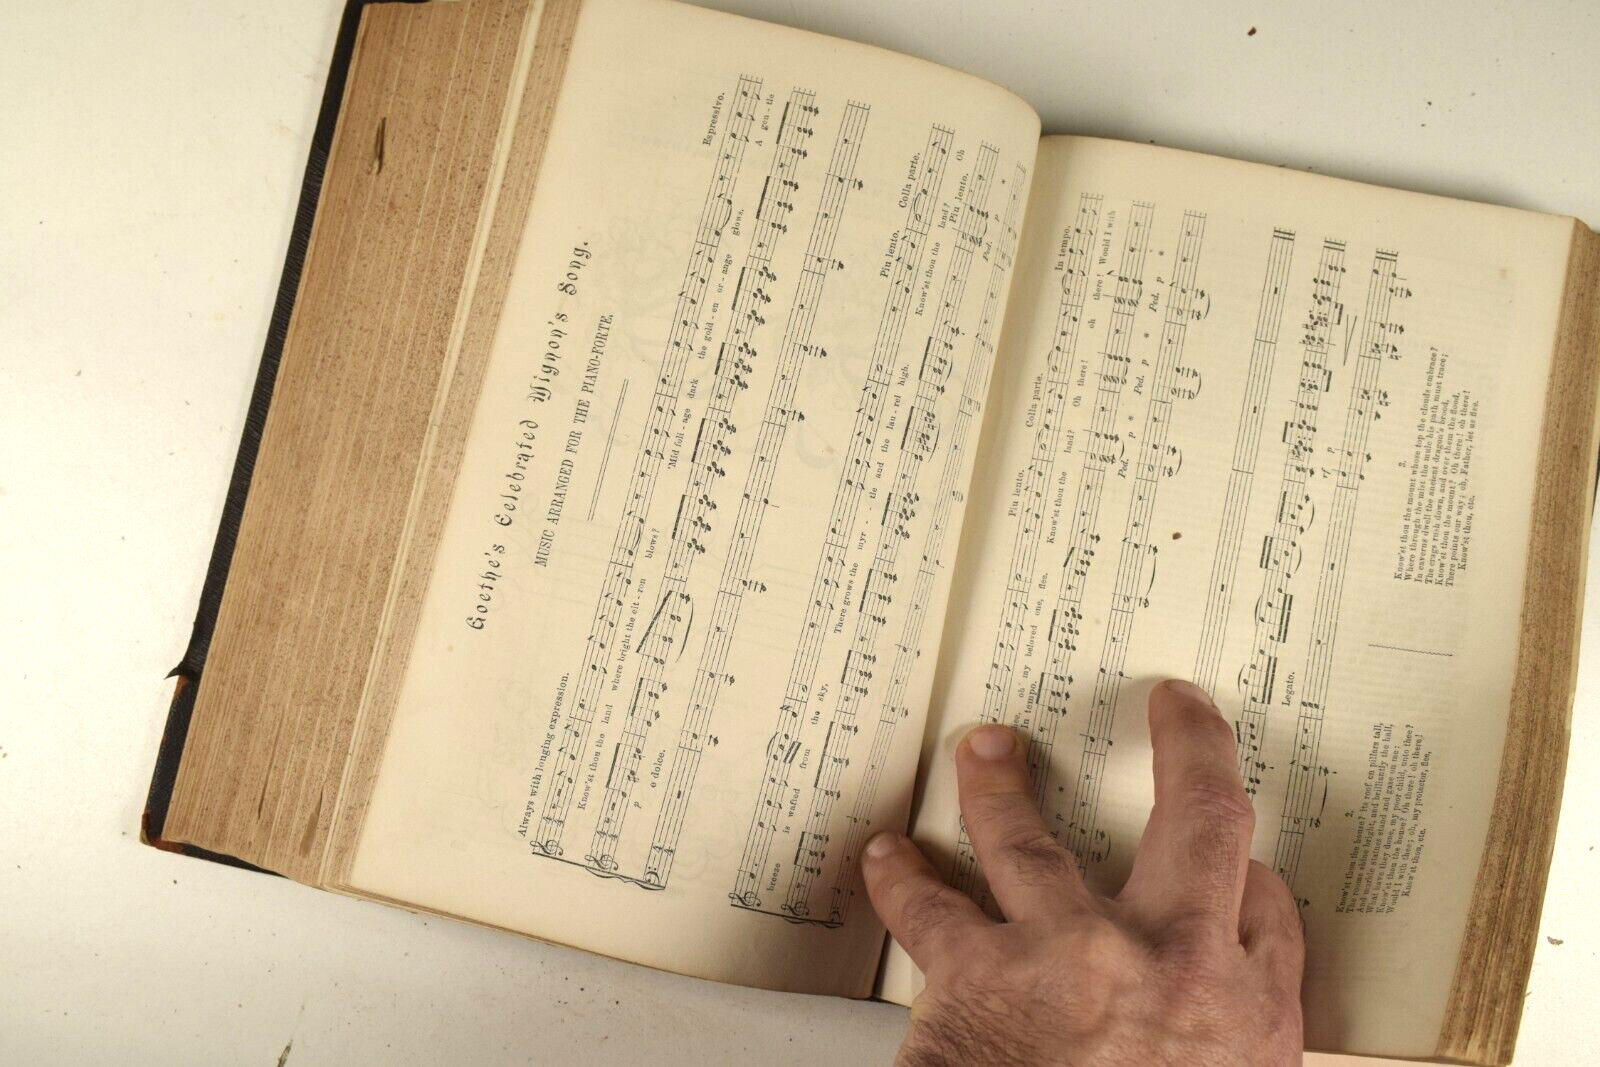 Goethe's Celebrated Mignon's Song.
MUSIC ARRANGED FOR THE PIANO-FORTE.
Always with longing expression.
Espressivo.
Know'st thou the land where bright the cit - ron blows? 'Mid foli - age dark the gold - en or - ange glows. A gen - tle
p e dolce.
Piu lento. Colla parte.
breeze is wafted from the sky, There grows the myr - - tle and the lau - rel high, Know'st thou the land? Oh
Piu lento.
Ped. p *
Piu lento. Colla parte. In tempo.
thee, oh my beloved one, flee. Know'st thou the land? Oh there! oh there! Would I with
In tempo.
p * Ped. p * Ped. p * Ped. p *
Legato.
rf p
2.
Know'st thou the house? its roof on pillars tall,
The rooms shine bright, and brilliantly the hall,
And marble statues stand and gaze on me:
What have they done, my poor child, unto thee?
Know'st thou the house? Oh there! oh there!
Would I with thee; oh, my protector, flee,
Know'st thou, etc.
3.
Know'st thou the mount whose top the clouds embrace?
Where through the mist the mule his path must trace;
In caverns dwell the ancient dragon's brood,
The crags rush down, and over them the flood,
Know'st thou the mount? Oh there! oh there!
There points our way; oh, Father, let us flee.
Know'st thou, etc.